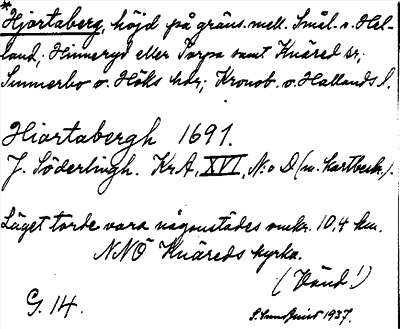 *Hjortaberg, höjd på gräns. mell. Smål. o. Hal-
land; Hinneryd eller Torpa samt Knäred sr;
Sunnerbo o. Höks hdr; Kronob. o. Hallands l.
Hiortabergh 1691.
J. Söderlingh. Kr.A, XVI, N:o D (m. kartbeskr.).
Läget torde vara någonstädes omkr. 10,4 km.
NNO Knäreds kyrka.
(Vänd!)
G. 14.
1937.